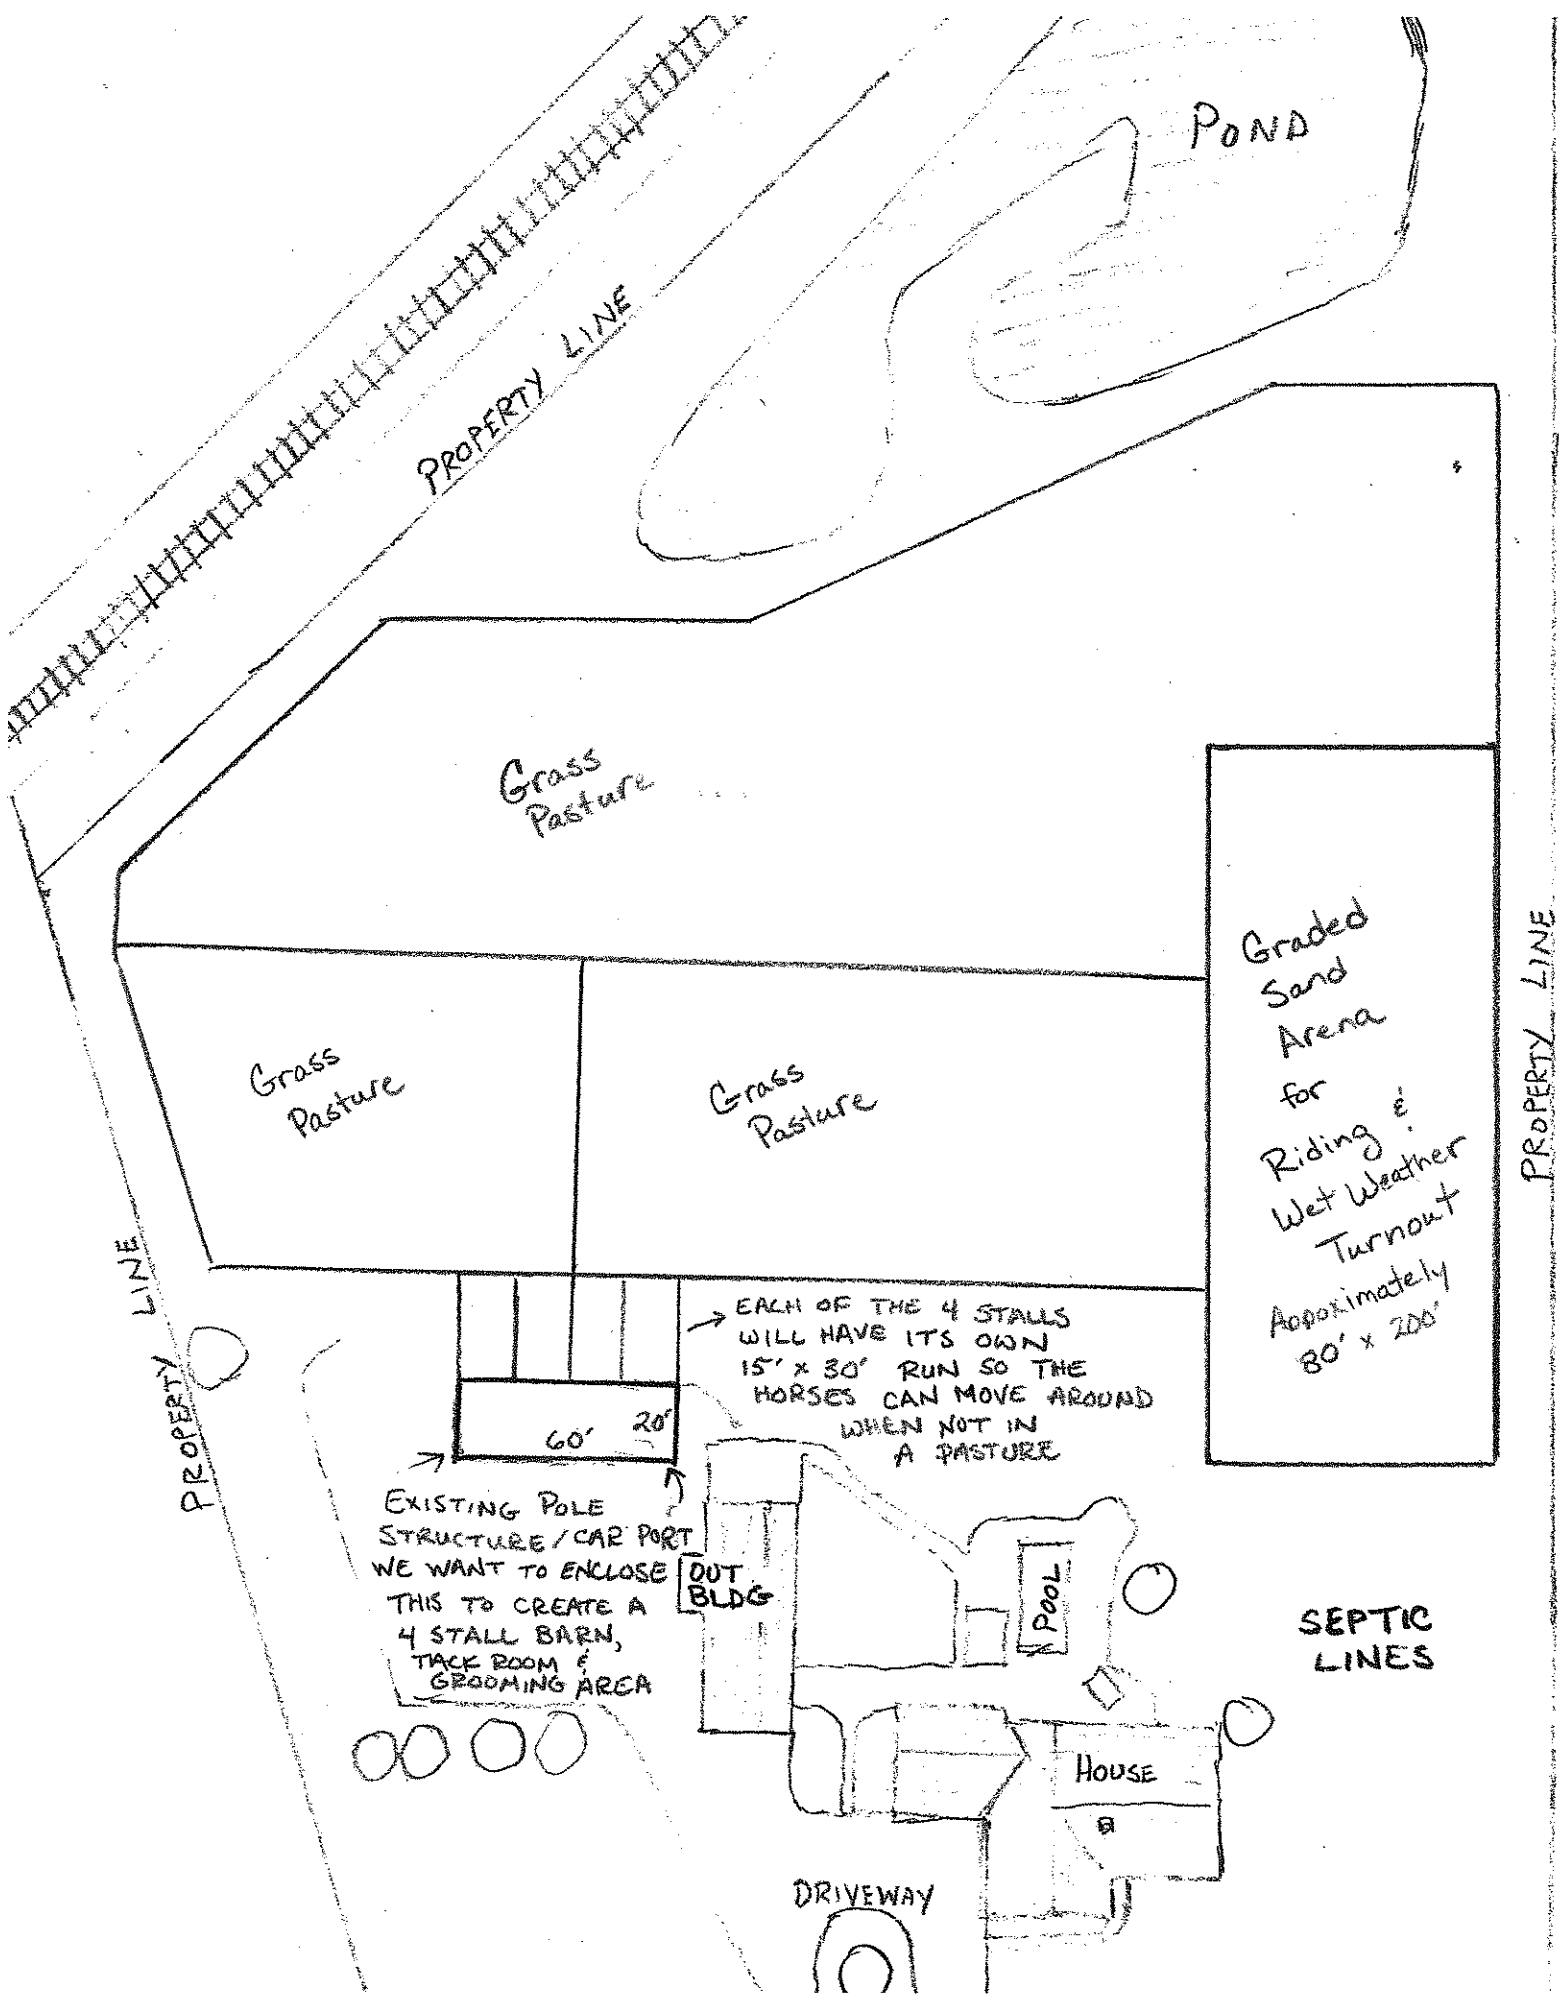 POND
PROPERTY LINE
Grass
Pasture
Graded
Sand
Arena
for
Riding &
Wet Weather
Turnout
Appoximately
80' x 200'
PROPERTY LINE
Grass
Pasture
Grass
Pasture
PROPERTY LINE
EACH OF THE 4 STALLS
WILL HAVE ITS OWN
15' x 30' RUN SO THE
HORSES CAN MOVE AROUND
WHEN NOT IN
A PASTURE
60'
20'
EXISTING POLE
STRUCTURE/CAR PORT
WE WANT TO ENCLOSE
THIS TO CREATE A
4 STALL BARN,
TACK ROOM &
GROOMING AREA
OUT
BLDG
POOL
SEPTIC
LINES
HOUSE
DRIVEWAY